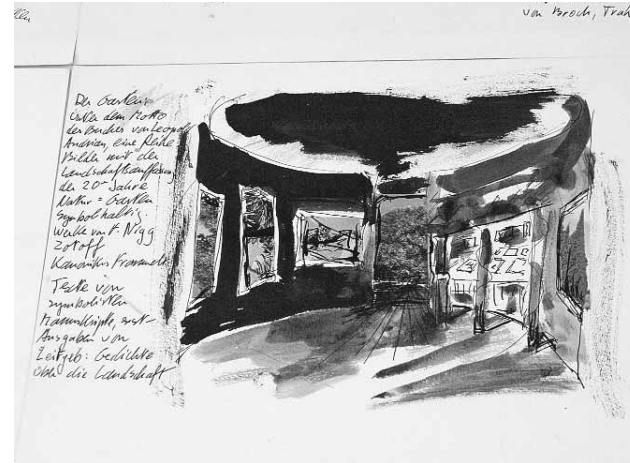 von Broch, Trak
Der Garten:
Unter dem Motto
des Buches von Leopo
Andrian, eine Reihe
Bilder mit der
Landschaftsauffassung
der 20er Jahre
Natur = Garten
Symbolhaltig
Werke von F. Nigg
Zotoff
Kanonikus Frommelt
Texte von
Symbolisten
Manuskripte, erst-
Ausgaben von
Zeitgeb: Gedichte
über die Landschaft